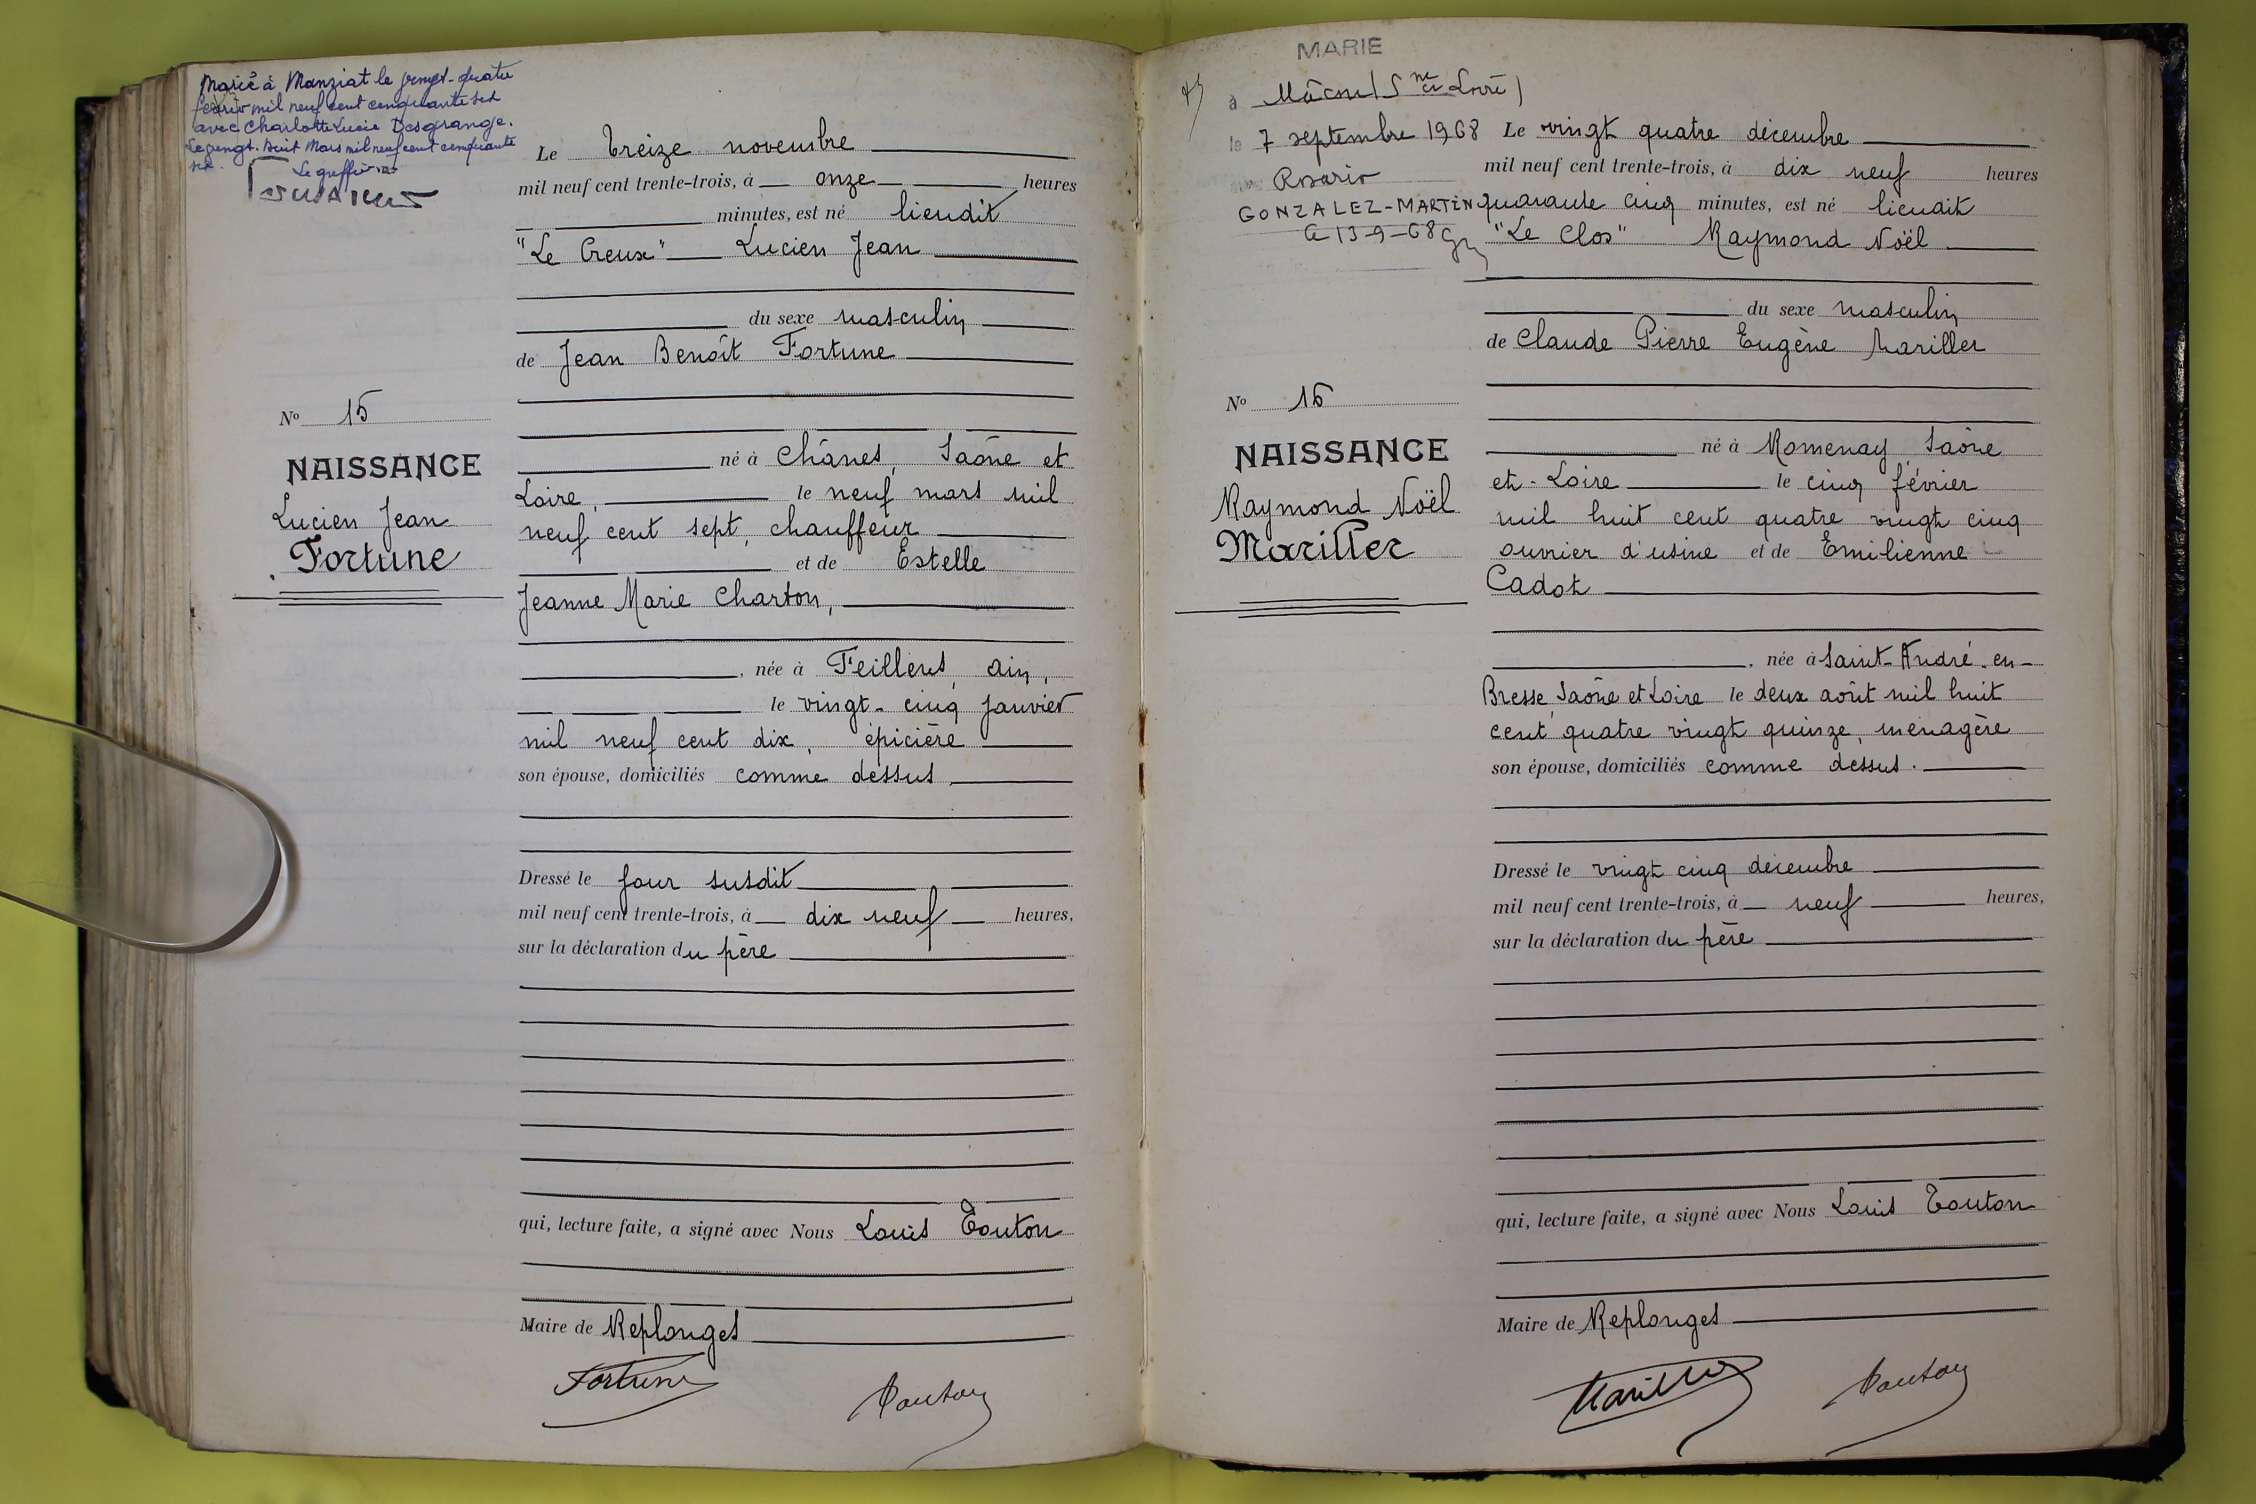 Marié à Manziat le vingt-quatre
février mil neuf cent cinquante six
avec Charlotte Lucie Desgrange.
Le vingt-huit Mars mil neuf cent cinquante
six.
Le greffier
Le Treize novembre
mil neuf cent trente-trois, à onze heures
minutes, est né lieudit
"Le Creux" Lucien Jean
du sexe masculin
de Jean Benoît Fortune
né à Chânes, Saône et
Loire, le neuf mars mil
neuf cent sept, chauffeur
et de Estelle
Jeanne Marie Charton,
, née à Feillens, Ain,
le vingt-cinq janvier
mil neuf cent dix, épicière
son épouse, domiciliés comme dessus
Dressé le jour susdit
mil neuf cent trente-trois, à dix neuf heures,
sur la déclaration du père
qui, lecture faite, a signé avec Nous Louis Touton
Maire de Replonges
Fortune
Touton
No 15
NAISSANCE
Lucien Jean
Fortune
MARIE
à Mâcon (S ne et Loire)
le 7 septembre 1968
Rosario
GONZALEZ-MARTIN
13-9-68
Le vingt quatre décembre
mil neuf cent trente-trois, à dix neuf heures
quarante cinq minutes, est né lieudit
"Le Clos" Raymond Noël
du sexe masculin
de Claude Pierre Eugène Mariller
né à Romenay Saône
et-Loire le cinq février
mil huit cent quatre vingt cinq
ouvrier d'usine et de Emilienne
Cadot
, née à Saint-André-en-
Bresse, Saône et Loire le deux août mil huit
cent quatre vingt quinze, ménagère
son épouse, domiciliés comme dessus.
Dressé le vingt cinq décembre
mil neuf cent trente-trois, à neuf heures,
sur la déclaration du père
qui, lecture faite, a signé avec Nous Louis Touton
Maire de Replonges
Mariller
Touton
No 16
NAISSANCE
Raymond Noël
Mariller